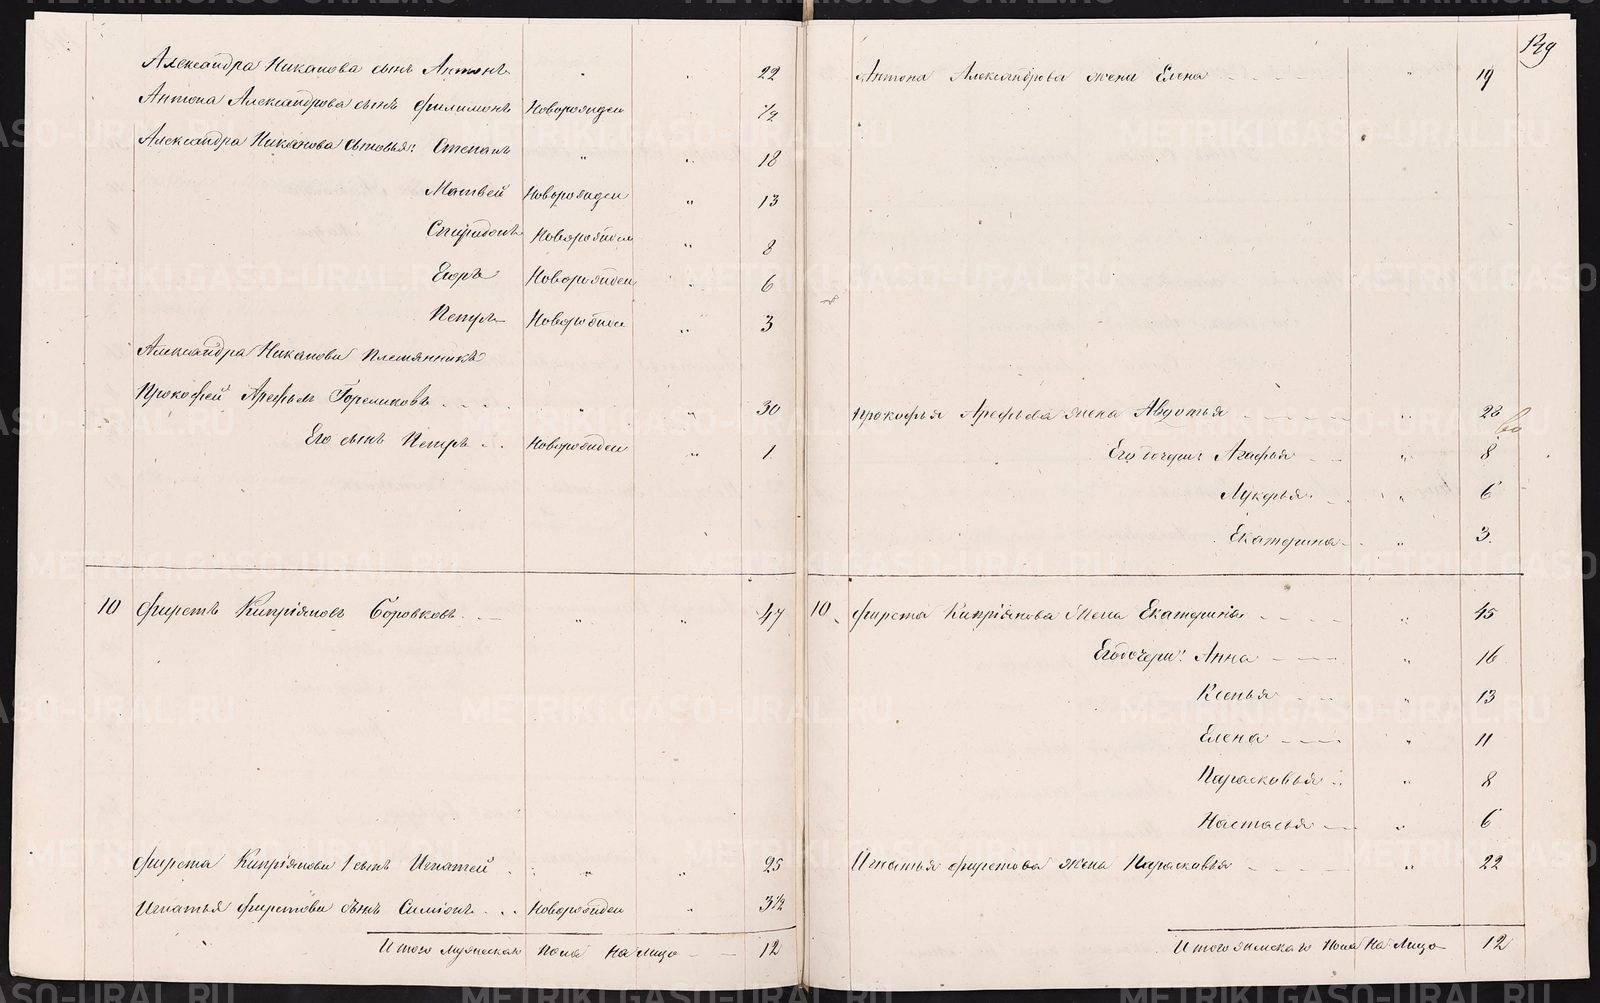 Александра Никанова сынъ Антонъ " " 22
Антона Александрова сынъ Филимонъ Новорожден 1/2
Александра Никанова сыновья: Степанъ " " 18
Матвей Новорожден " 13
Спиридонъ Новорожден " 8
Егоръ Новорожден " 6
Петръ Новорожден " 3
Александра Никанова племянникъ
Прокофей Арефьевъ Гореликовъ " " 30
Его сынъ Петръ Новорожден " 1
10 Фирстъ Кипріяновъ Боровковъ " " 47
Фирста Кипріянова 1 сынъ Игнатей " " 25
Игнатья Фирстова сынъ Симіонъ Новорожден " 3 1/2
Итого мужеска пола на лицо 12
139
Антона Александрова жена Елена " 19
Прокофья Арефьева жена Авдотья " 28
Его дочери Агафья " 8
Лукерья " 6
Екатерина " 3
10 Фирста Кипріянова жена Екатерина " 45
Его дочери: Анна " 16
Ксенья " 13
Елена " 11
Парасковья " 8
Настасья " 6
Игнатья Фирстова жена Парасковья " 22
Итого женскаго пола на лицо 12
METRIKI.GASO-URAL.RU